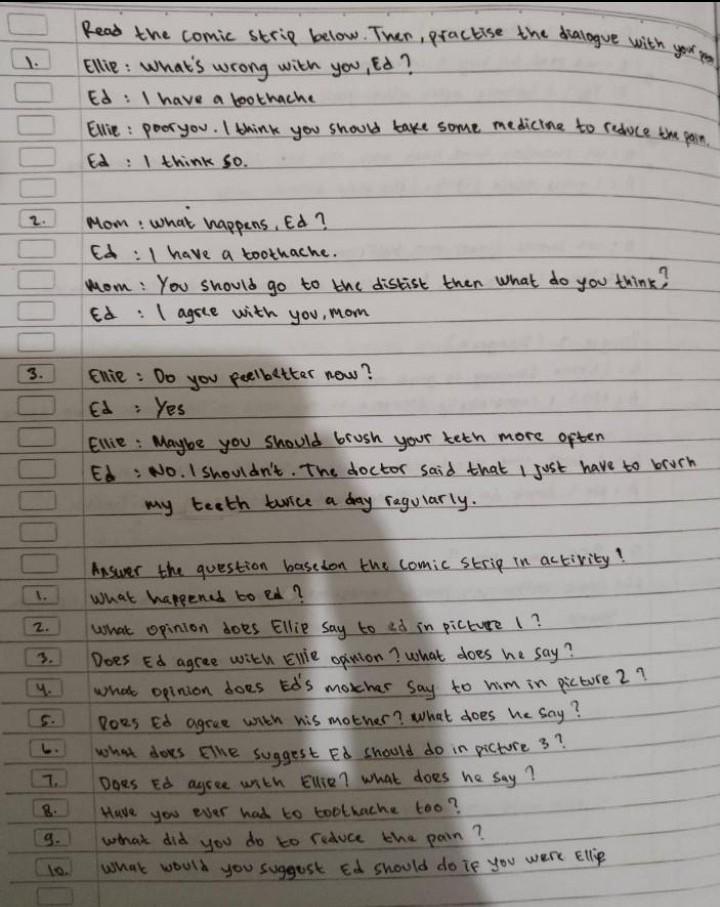 Read the comic strip below. Then, practise the dialogue with your
1. Ellie : What's wrong with you, Ed ?
Ed : I have a toothache
Ellie : poor you. I think you should take some medicine to reduce the pain.
Ed : I think so.
2. Mom : what happens, Ed ?
Ed : I have a toothache.
Mom : You should go to the distist then what do you think?
Ed : I agree with you, Mom
3. Ellie : Do you feelbetter now ?
Ed : Yes
Ellie : Maybe you should brush your teth more often
Ed : No. I shouldn't. The doctor said that I just have to brurh
my teeth twice a day regularly.
Answer the question basedon the comic strip in activity !
1. What happened to ed ?
2. What opinion does Ellie say to ed in picture 1 ?
3. Does Ed agree with Ellie opinion ? what does he say ?
4. what opinion does Ed's mothher say to him in picture 2 ?
5. Does Ed agree with his mother ? What does he say ?
6. what does Ellie suggest Ed should do in picture 3 ?
7. Does Ed agree with Ellie ? what does he say ?
8. Have you ever had to toothache too ?
9. what did you do to reduce the pain ?
10. What would you suggest Ed should do if you were Ellie